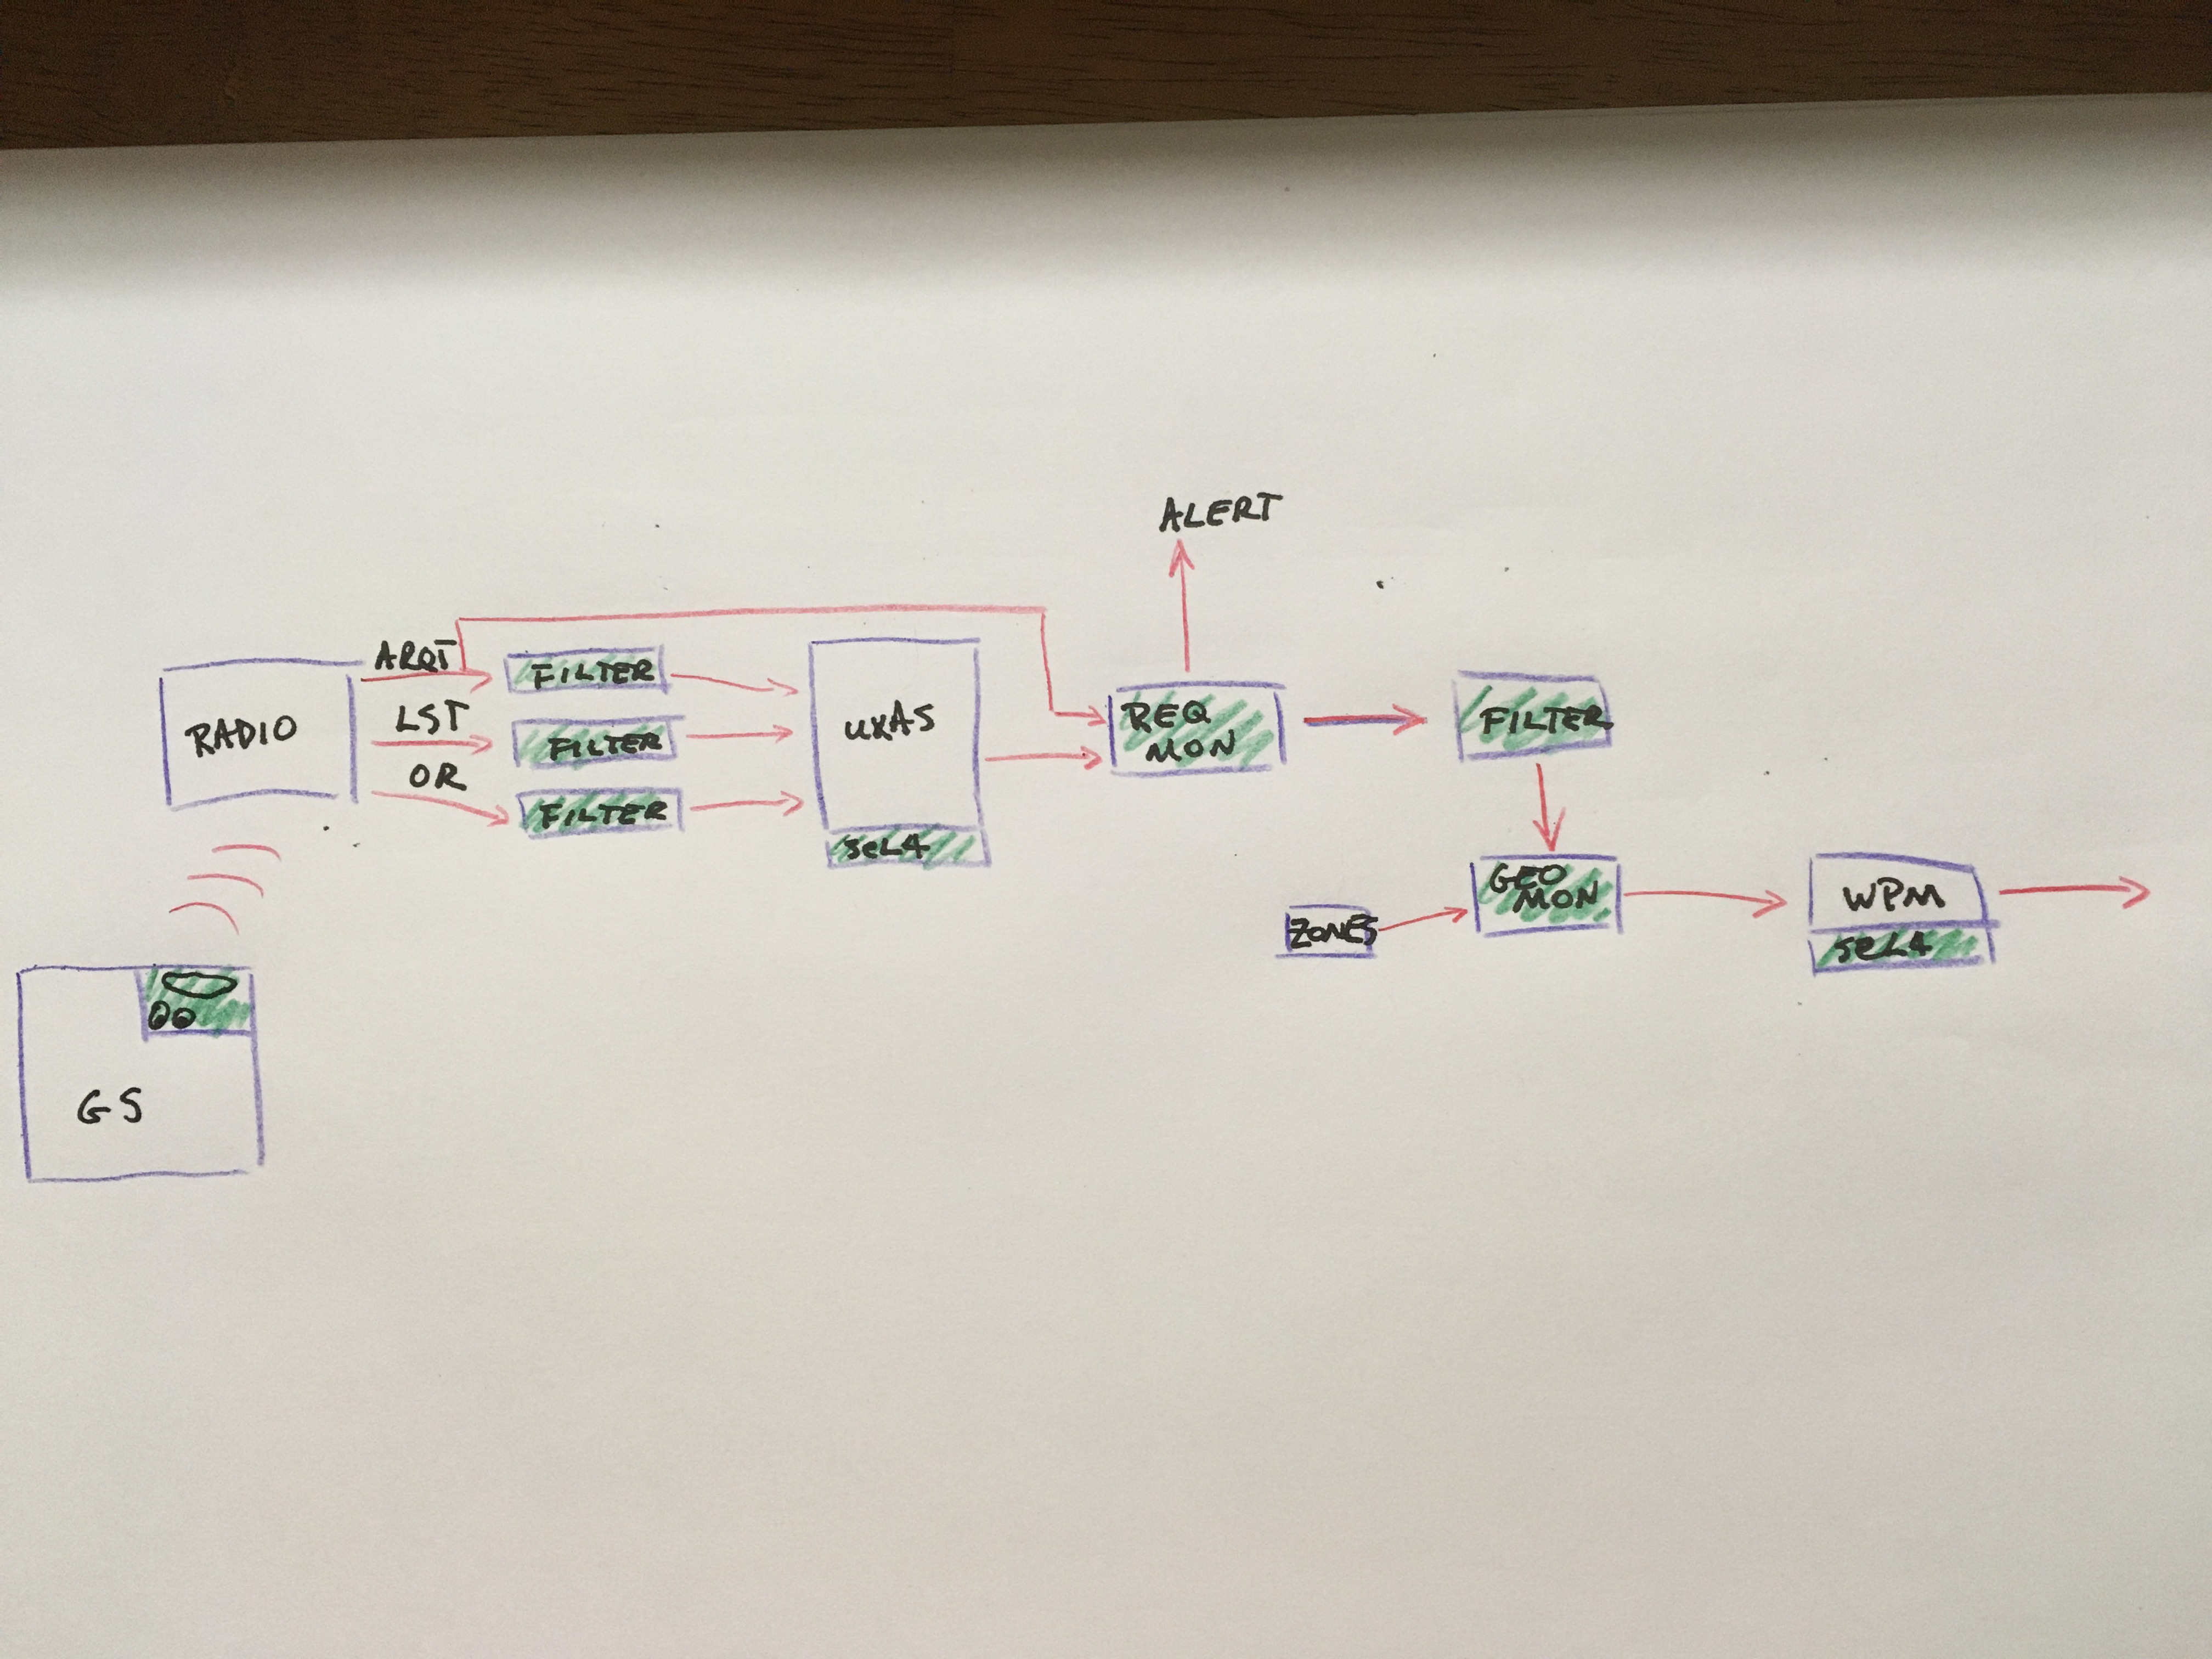 GS
RADIO
ARQT
LST
OR
FILTER
FILTER
FILTER
UXAS
seL4
REQ
MON
ALERT
FILTER
ZONES
GEO
MON
WPM
seL4